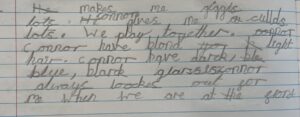 He makes me giggle
lots. Connor gives me a cuddls
lots. We play together. connor
connor have blond light
hair. connor have dark,
blue, blark glasses connor
always loockes out for
me when we are at the